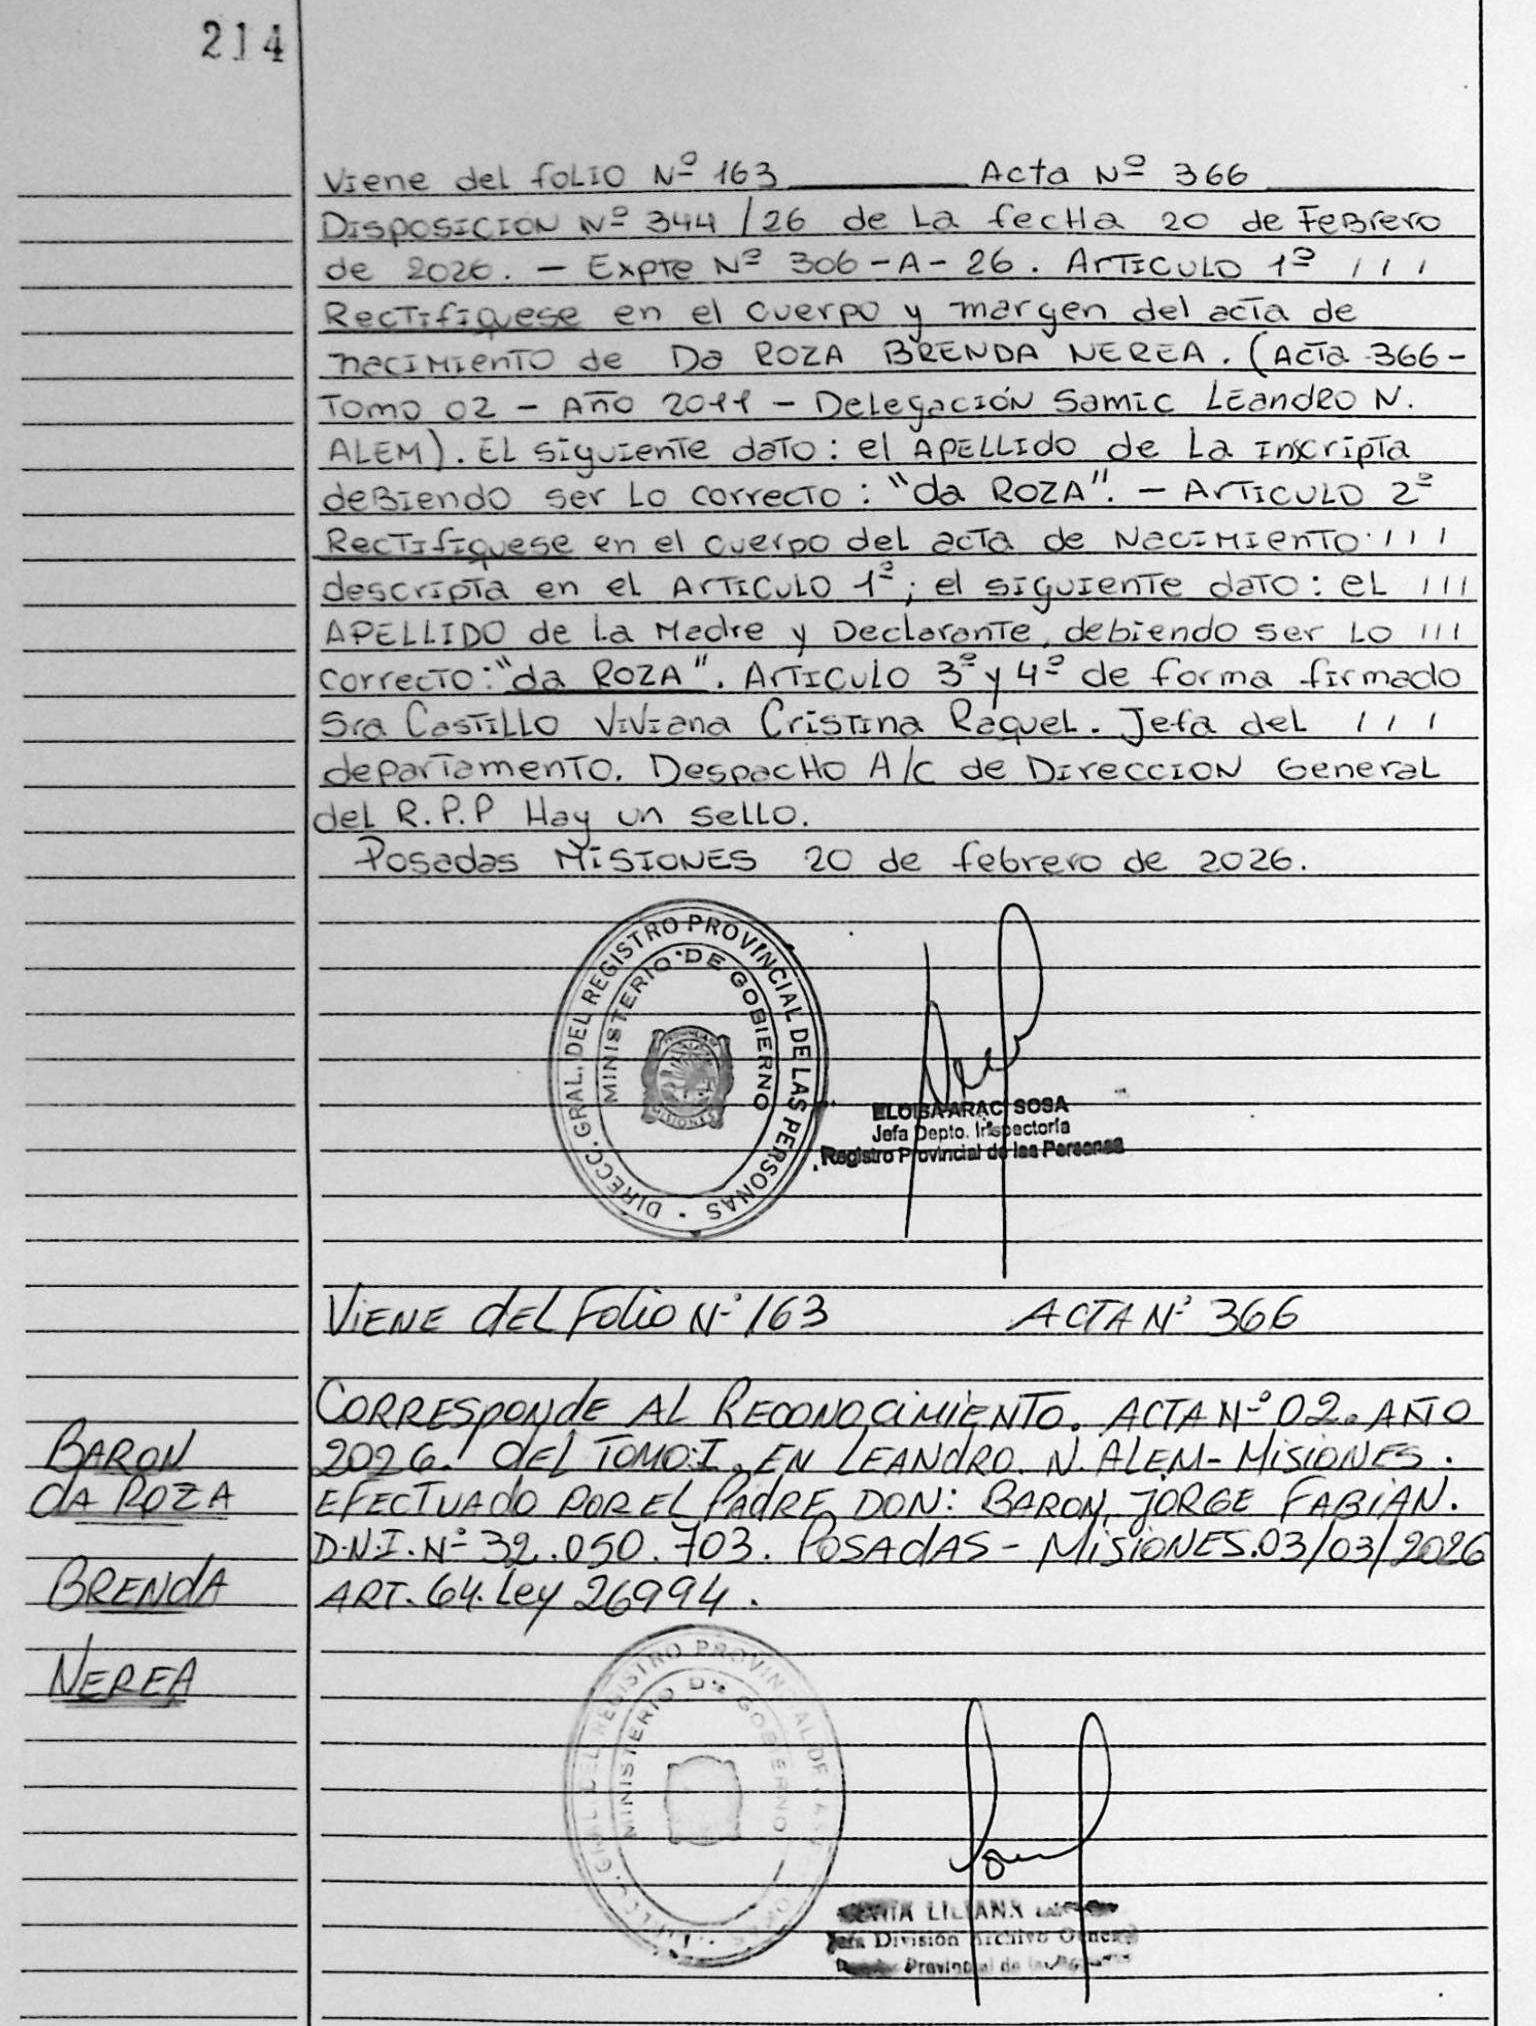 214
Viene del folio Nº 163 Acta Nº 366
Disposición Nº 344/26 de La fecHa 20 de Febrero
de 2026. - Expte Nº 306-A-26. Articulo 1º / / /
Rectifíquese en el cuerpo y margen del acta de
nacimiento de Da ROZA BRENDA NEREA. (Acta 366-
Tomo 02 - Año 2011 - Delegación Samic Leandro N.
ALEM). El siguiente dato: el APELLIDO de La Inscripta
debiendo ser Lo correcto: "da ROZA". - Articulo 2º
Rectifíquese en el cuerpo del acta de Nacimiento / / /
descripta en el Articulo 1º; el siguiente dato: el / / /
APELLIDO de La Madre y Declarante, debiendo ser Lo / / /
correcto: "da ROZA". Articulo 3º y 4º de forma firmado
Sra Castillo Viviana Cristina Raquel. Jefa del / / /
departamento. Despacho A/c de Dirección General
del R.P.P Hay un sello.
Posadas MISIONES 20 de febrero de 2026.
DIRECC. GRAL. DEL REGISTRO PROVINCIAL DE LAS PERSONAS
MINISTERIO DE GOBIERNO
MISIONES
ELOISA ARACI SOSA
Jefa Depto. Inspectoría
Registro Provincial de las Personas
VIENE del Folio Nº 163 ACTA Nº 366
CORRESPONDE AL RECONOCIMIENTO. ACTA Nº 02. AÑO
2026. DEL TOMO:I. EN LEANDRO. N. ALEM- MISIONES.
EFECTUADO POR EL PADRE DON: BARON, JORGE FABIAN.
D.N.I. Nº 32.050.703. POSADAS - MISIONES.03/03/2026
ART. 64. Ley 26994.
BARON
dA ROZA
BRENDA
NEREA
REGISTRO PROVINCIAL
MINISTERIO DE GOBIERNO
LILIANA
Jefa División Archivo General
Provincial de las